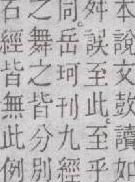 本說文鼓讀如
舛誤至此。至乎
同。岳珂刊九經
之舞之皆分別
石經皆無此例